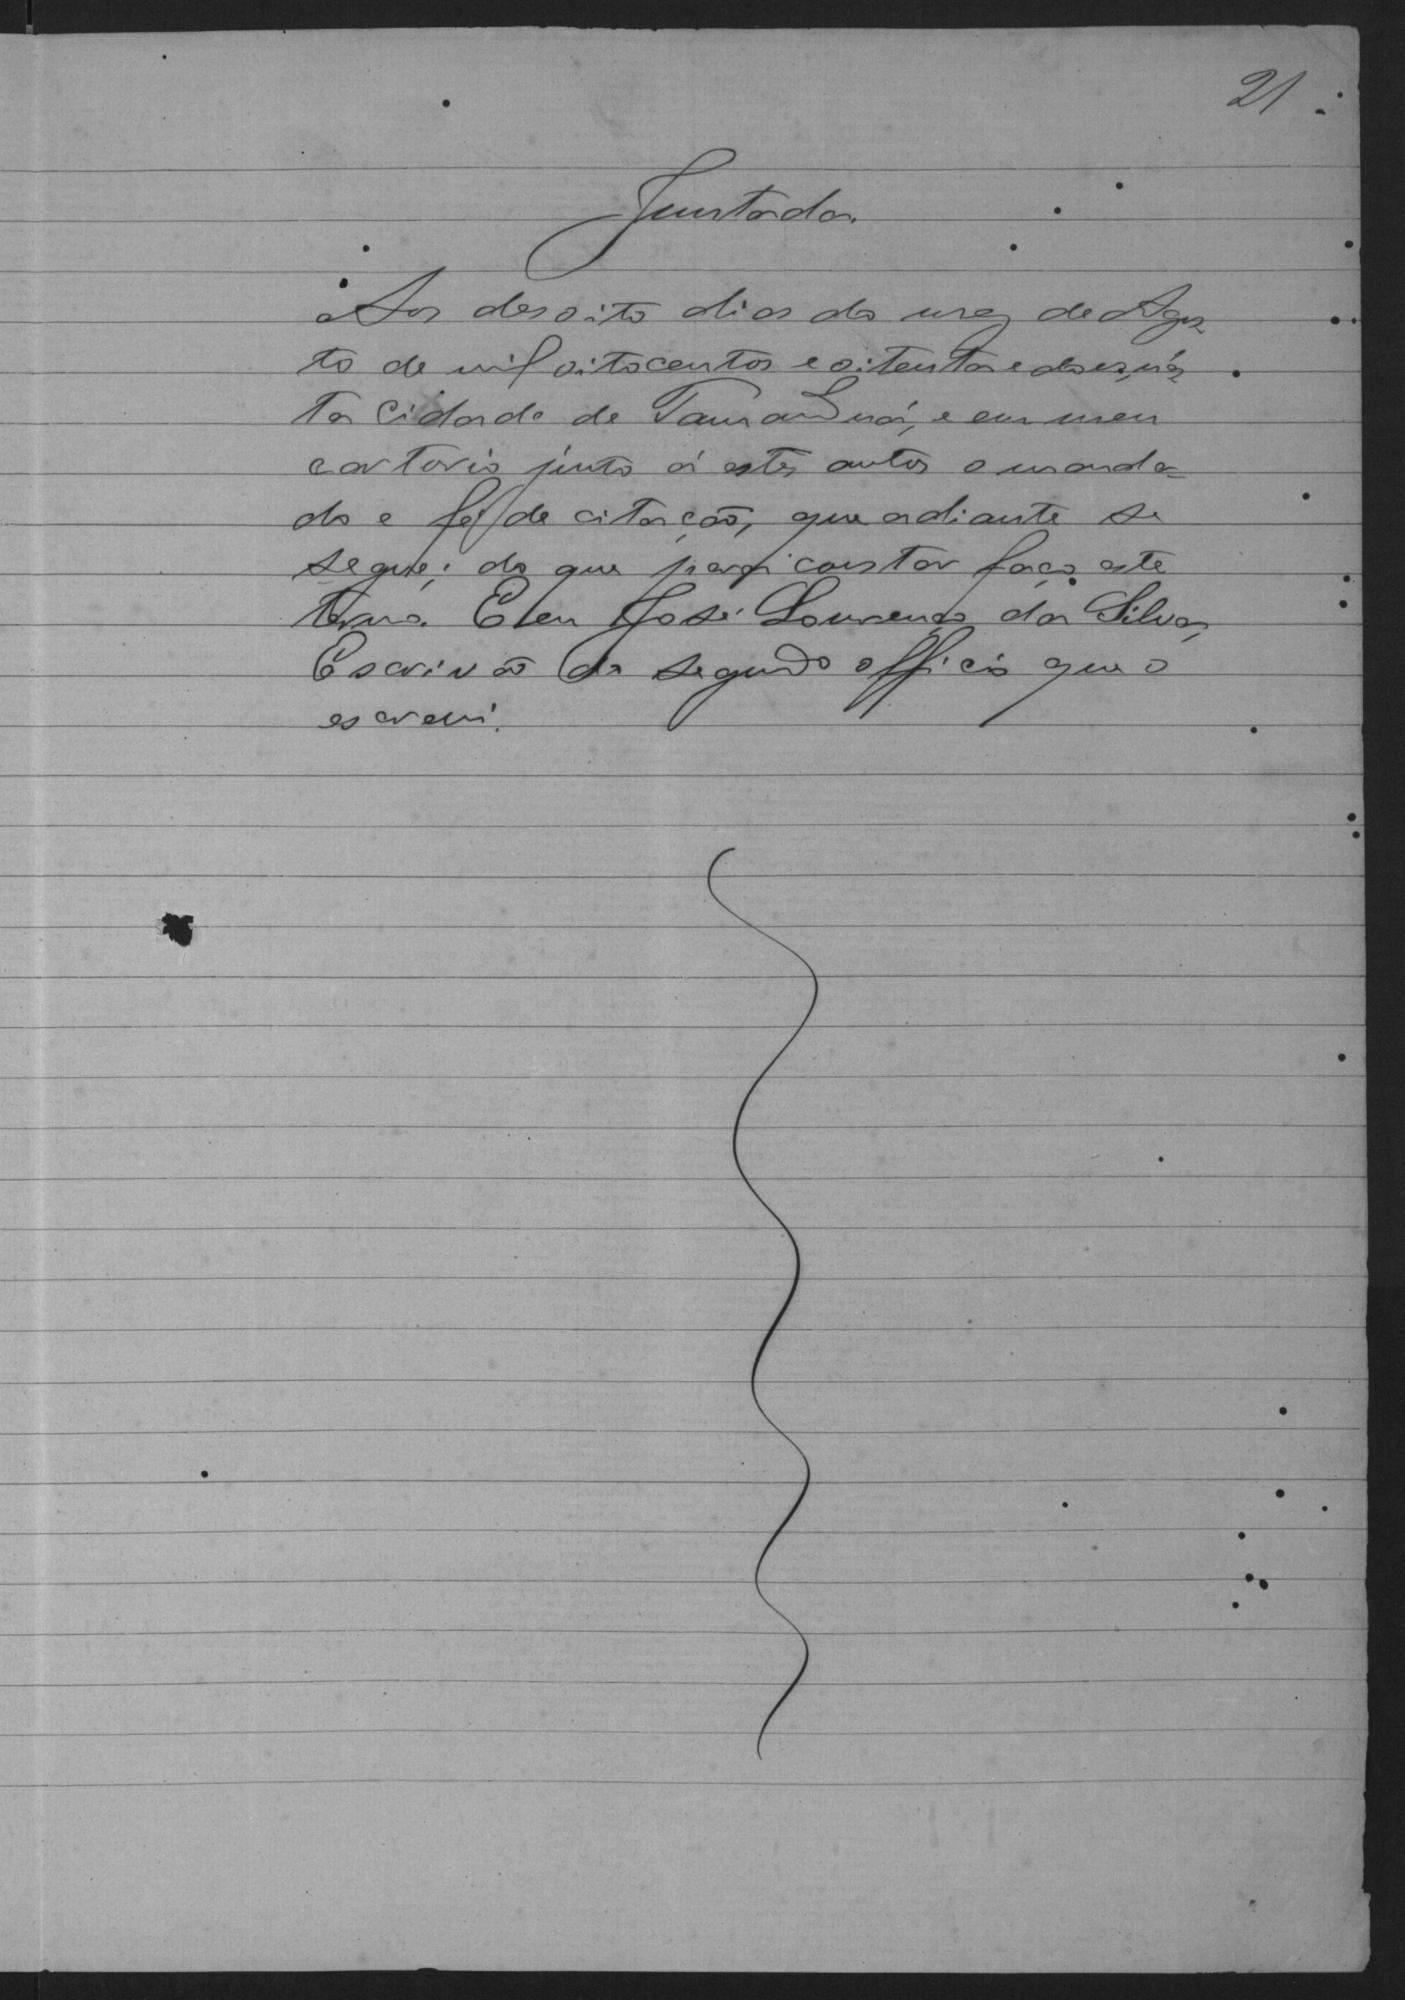 21
Juntada.
Aos desoito dias do mez de Agos
to de mil oitocentos e oitenta e dois, nés
ta Cidade de Tamanduá, e em meu
cartorio junto á estes autos o manda=
do e fé de citação, que adiante se
segue; do que para constar faço este
termo. E eu José Lourenço da Silva,
Escrivão do segundo officio que o
escrevi.